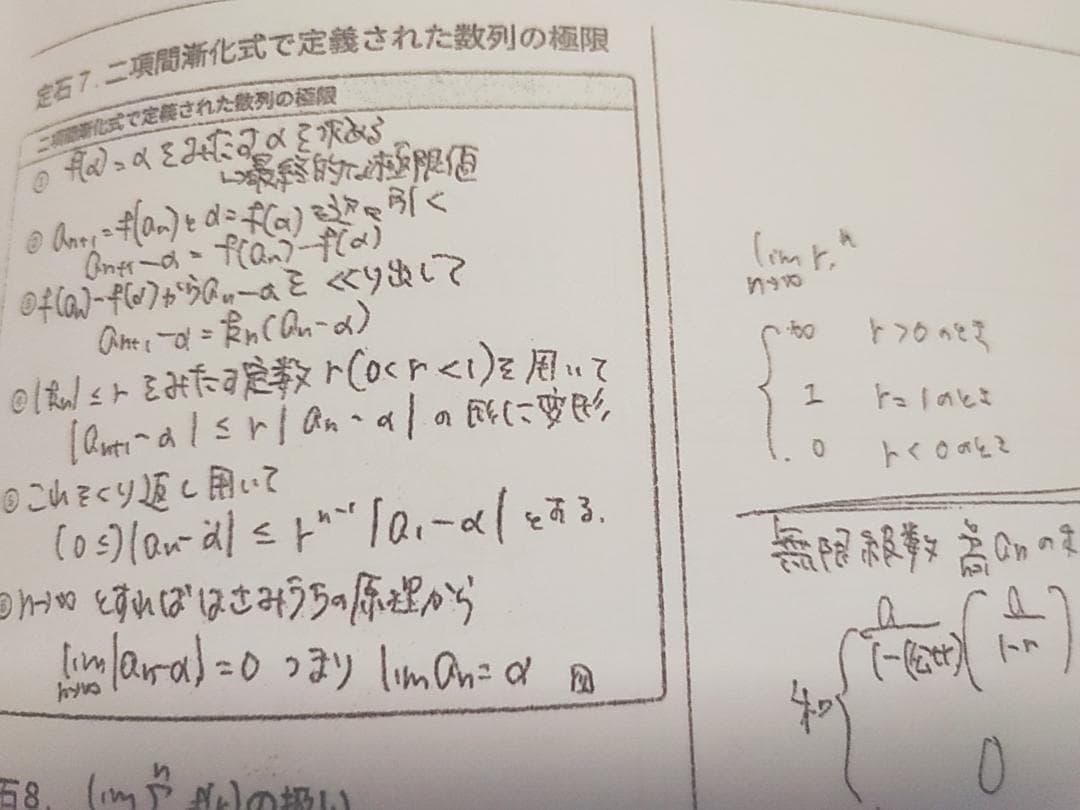 定石7. 二項間漸化式で定義された数列の極限
二項間漸化式で定義された数列の極限
① f(α)=αをみたすαを求める
↳最終的な極限値
② an+1=f(an)とα=f(α)を辺々引く
an+1-α=f(an)-f(α)
③ f(an)-f(α)からan-αをくくり出して
an+1-α=kn(an-α)
④ |kn|≤rをみたす定数r(0<r<1)を用いて
|an+1-α|≤r|an-α|の形に変形
⑤ これをくり返し用いて
(0≤)|an-α|≤r^{n-1}|a1-α|とする.
⑥ n→∞とすればはさみうちの原理から
lim n→∞ |an-α|=0 つまり lim an=α
石8. lim Σ n の扱い
lim n→∞ r^n
∞ r>0のとき
1 r=1のとき
0 r<0のとき
無限級数 Σ an の
和
a
(a/1-r)
0